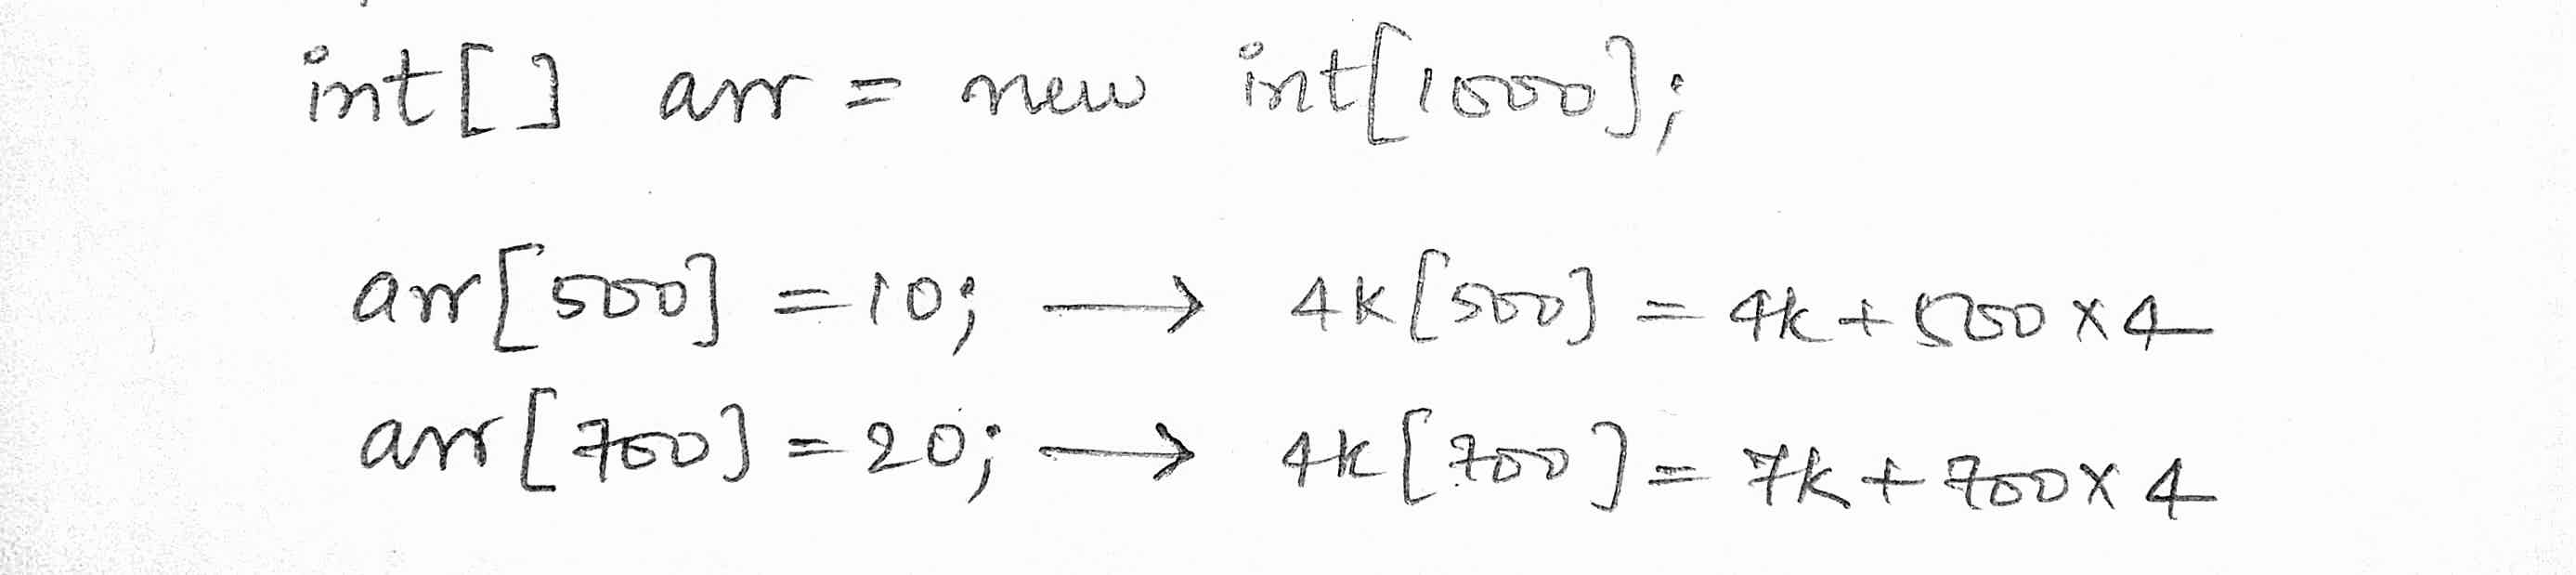 int[] arr = new int[1000];
arr[500] = 10; → 4K[500] = 4K + 500 × 4
arr[700] = 20; → 4K[700] = 7K + 700 × 4